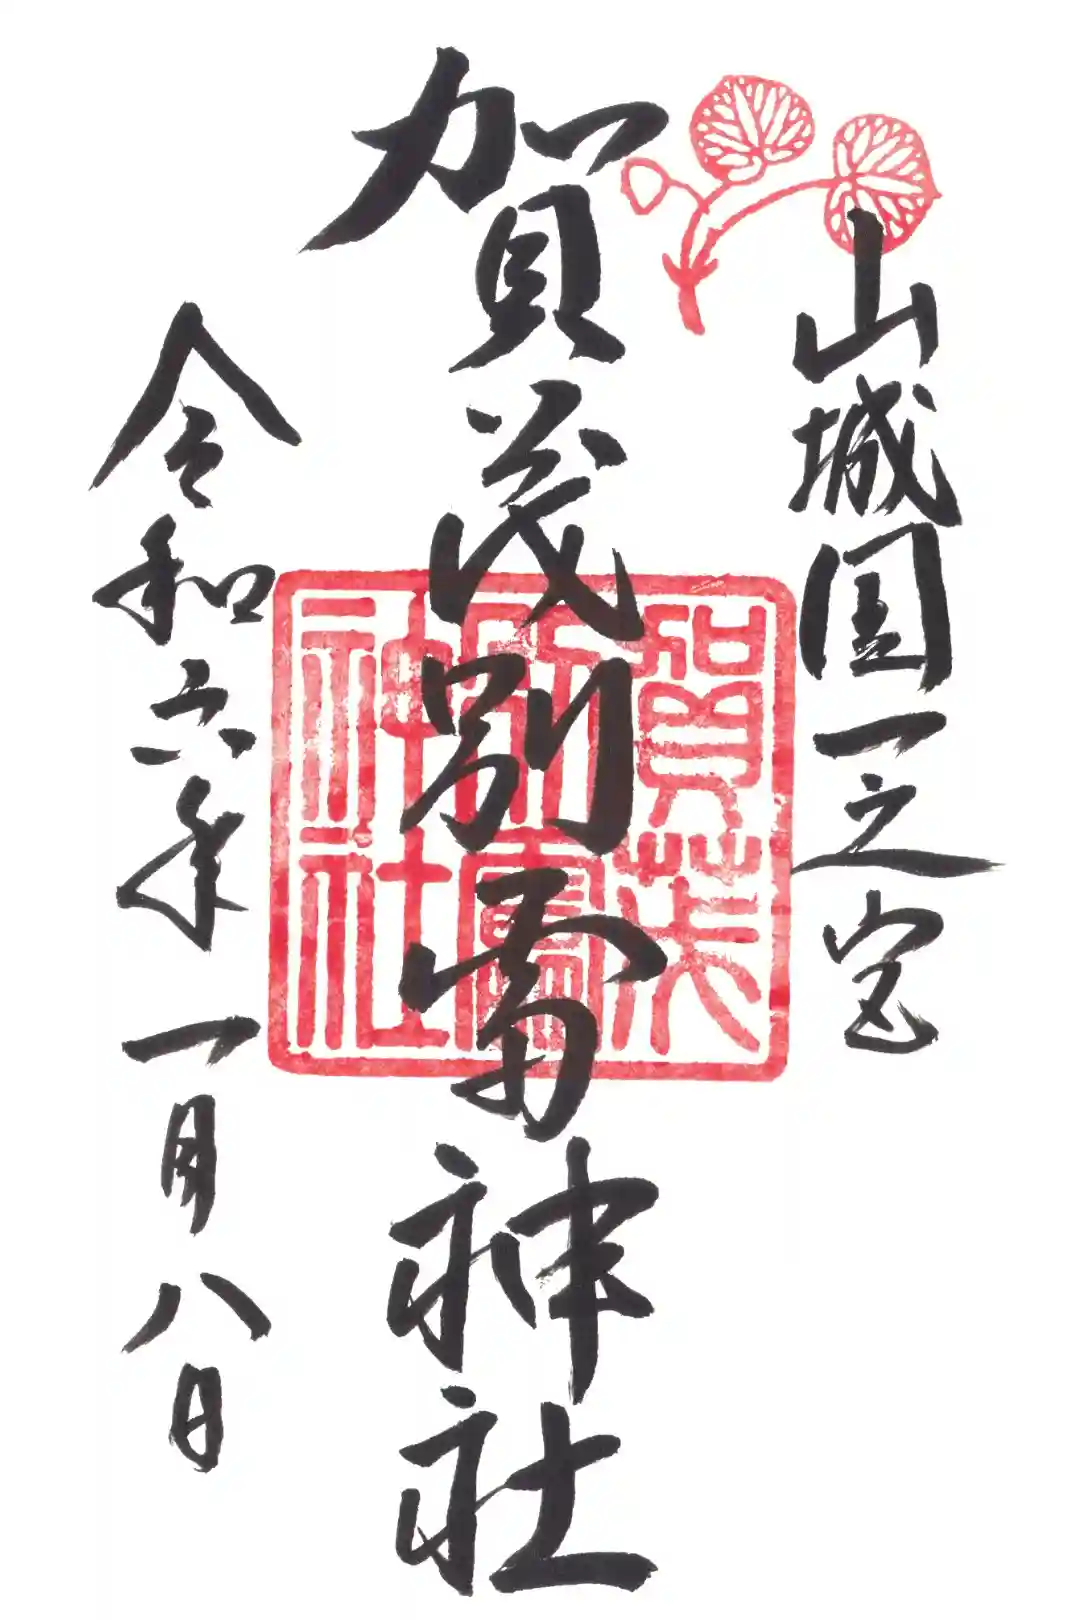 山城国一之宮
賀茂別雷神社
令和六年一月八日
賀茂
別雷
神社